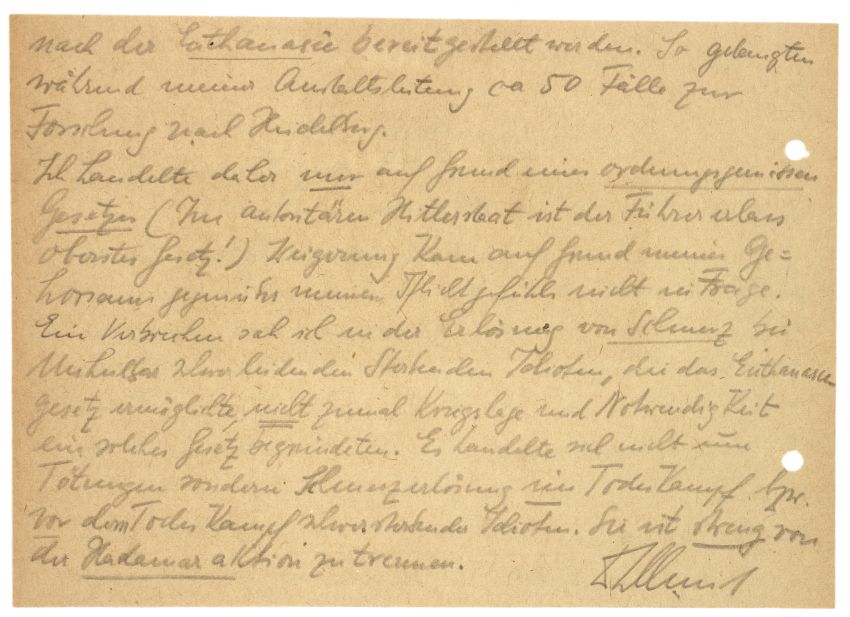 nach der Euthanasie bereitgestellt werden. So gelangten
während meiner Anstaltsleitung ca 50 Fälle zur
Forschung nach Heidelberg.
Ich handelte daher nur auf Grund eines ordnungsgemässen
Gesetzes (Im autoritären Hitlerstaat ist der Führererlass
oberstes Gesetz!) Weigerung kam auf Grund meines Ge=
horsams gegenüber meinem Pflichtgefühle nicht in Frage.
Ein Verbrechen sah ich in der Erlösung von Schmerz bei
Unheilbar schwer leidenden Sterbenden Idioten, die das Euthanasie
gesetz ermöglichte, nicht zumal Kriegslage und Notwendigkeit
ein solches Gesetz begründeten. Es handelte sich nicht um
Tötungen sondern Schmerzerlösung im Todeskampf bzw.
vor dem Todeskampf schwersterbender Idioten. Sie ist streng von
der Hadamar aktion zu trennen.